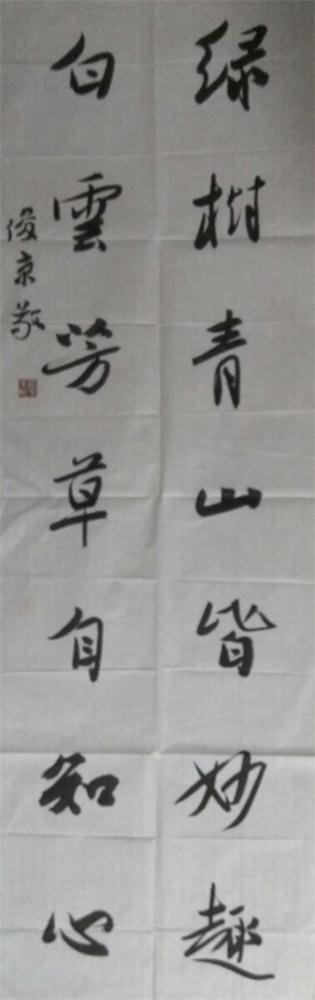 绿树青山皆妙趣
白雲芳草自知心
俊京敬